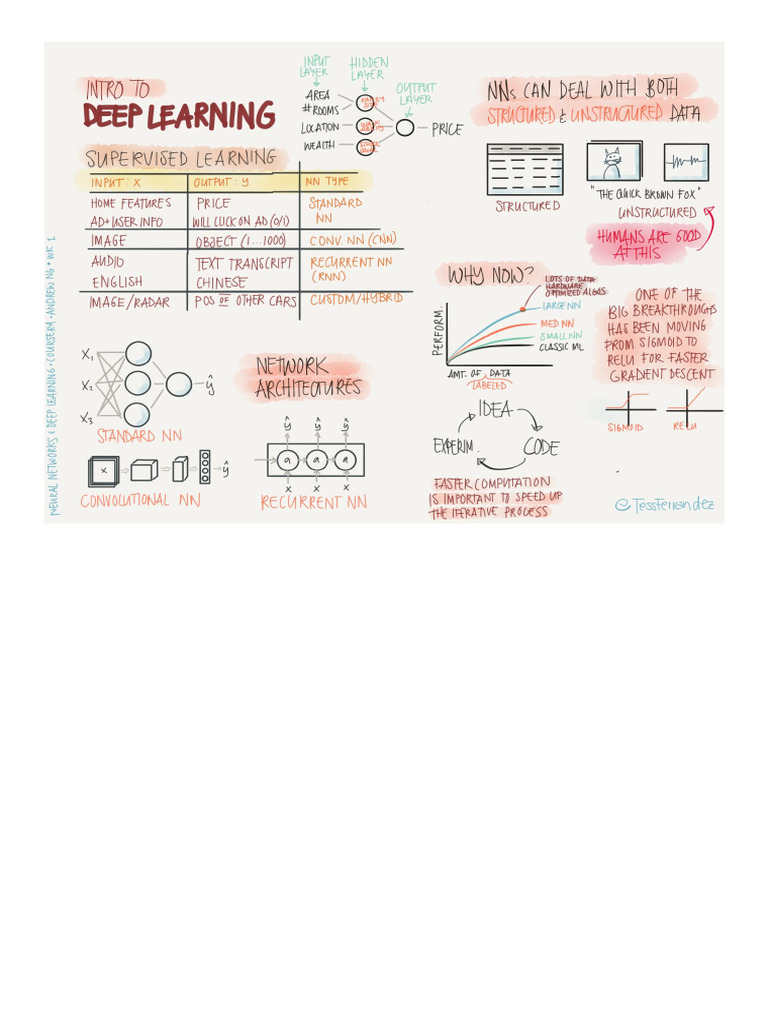 INTRO TO
DEEP LEARNING
INPUT LAYER
HIDDEN LAYER
OUTPUT LAYER
AREA
# ROOMS
LOCATION
WEALTH
PRICE
SUPERVISED LEARNING
INPUT: X OUTPUT: Y NN TYPE
HOME FEATURES PRICE STANDARD
AD+USER INFO WILL CLICK ON AD (0/1) NN
IMAGE OBJECT (1...1000) CONV. NN (CNN)
AUDIO TEXT TRANSCRIPT RECURRENT NN
ENGLISH CHINESE (RNN)
IMAGE/RADAR POS OF OTHER CARS CUSTOM/HYBRID
X1
X2
X3
ŷ
STANDARD NN
NETWORK
ARCHITECTURES
X
ŷ
CONVOLUTIONAL NN
ŷ ŷ ŷ
a a a
X X X
RECURRENT NN
NNs CAN DEAL WITH BOTH
STRUCTURED & UNSTRUCTURED DATA
STRUCTURED
"THE QUICK BROWN FOX"
UNSTRUCTURED
HUMANS ARE GOOD
AT THIS
WHY NOW?
LOTS OF DATA
HARDWARE
OPTIMIZED ALGOS
LARGE NN
MED NN
SMALL NN
CLASSIC ML
PERFORM.
AMT. OF DATA
LABELED
ONE OF THE
BIG BREAKTHROUGHS
HAS BEEN MOVING
FROM SIGMOID TO
RELU FOR FASTER
GRADIENT DESCENT
SIGMOID RELU
IDEA
CODE
EXPERIM.
FASTER COMPUTATION
IS IMPORTANT TO SPEED UP
THE ITERATIVE PROCESS
@TessFerrandez
NEURAL NETWORKS & DEEP LEARNING • COURSERA • ANDREW NG • WK 1